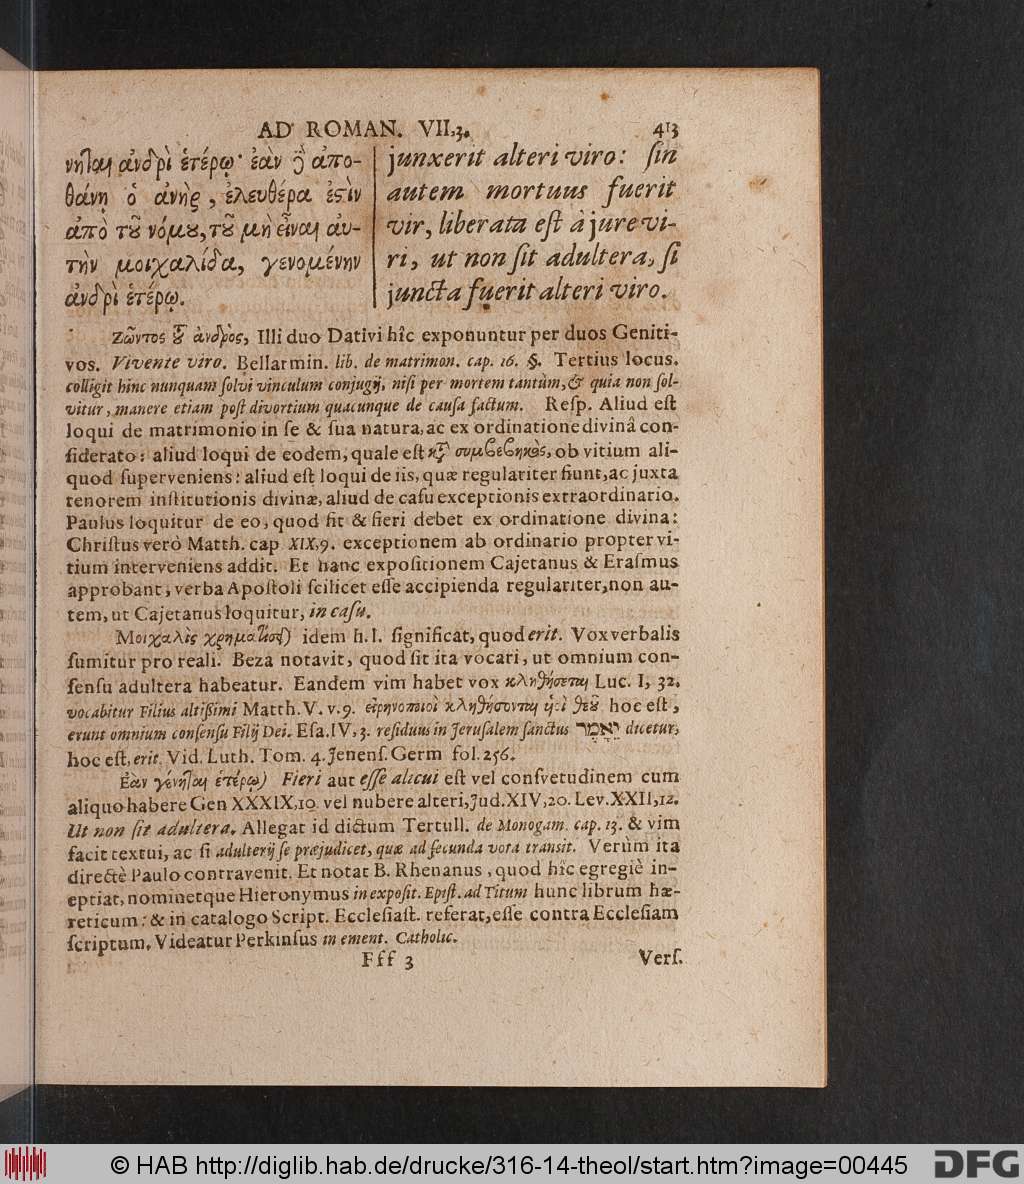 AD ROMAN. VII,3. 413
νηται ἀνδρὶ ἑτέρῳ· ἐὰν ϳ ἀπο-
θάνῃ ὁ ἀνὴρ, ἐλευθέρα ἐστὶν
ἀπὸ τȣ͂ νόμȣ, τȣ͂ μὴ εἶναι αὐ-
τὴν μοιχαλίδα, γενομένην
ἀνδρὶ ἑτέρῳ.
junxerit alteri viro: ſin
autem mortuus fuerit
vir, liberata eſt à jure vi-
ri, ut non ſit adultera, ſi
juncta fuerit alteri viro.
Ζῶντος τȣ͂ ἀνδρὸς, Illi duo Dativi hîc exponuntur per duos Geniti-
vos. Vivente viro. Bellarmin. lib. de matrimon. cap. 16. §. Tertius locus.
colligit hinc nunquam ſolvi vinculum conjugij, niſi per mortem tantùm, & quia non ſol-
vitur, manere etiam poſt divortium quacunque de cauſa factum. Reſp. Aliud eſt
loqui de matrimonio in ſe & ſua natura, ac ex ordinatione divinâ con-
ſiderato: aliud loqui de eodem, quale eſt κτ̃ συμβεβηκὸς, ob vitium ali-
quod ſuperveniens: aliud eſt loqui de iis, quæ regulariter fiunt, ac juxta
tenorem inſtitutionis divinæ, aliud de caſu exceptionis extraordinario.
Paulus loquitur de eo, quod fit & fieri debet ex ordinatione divina:
Chriſtus verò Matth. cap XIX,9. exceptionem ab ordinario propter vi-
tium interveniens addit. Et hanc expoſitionem Cajetanus & Eraſmus
approbant, verba Apoſtoli ſcilicet eſſe accipienda regulariter, non au-
tem, ut Cajetanus loquitur, in caſu.
Μοιχαλὶς χρηματίσει) idem h. l. ſignificat, quod erit. Vox verbalis
ſumitur pro reali. Beza notavit, quod ſit ita vocari, ut omnium con-
ſenſu adultera habeatur. Eandem vim habet vox κληθήσεται Luc. I, 32.
vocabitur Filius altißimi Matth. V. v. 9. εἰρηνοποιοὶ κληθήσονται ἡοὶ θεȣ͂ hoc eſt,
erunt omnium conſenſu Filij Dei. Eſa. IV, 3. reſiduus in Jeruſalem ſanctus יֵאָמֶר dicetur,
hoc eſt, erit. Vid. Luth. Tom. 4. Jenenſ. Germ fol. 256.
Ἐὰν γένηται ἑτέρῳ) Fieri aut eſſe alicui eſt vel conſvetudinem cum
aliquo habere Gen XXXIX,10. vel nubere alteri, Jud. XIV, 20. Lev. XXII, 12.
Ut non ſit adultera. Allegat id dictum Tertull. de Monogam. cap. 13. & vim
facit textui, ac ſi adulterij ſe præjudicet, quæ ad ſecunda vota tranſit. Verùm ita
directè Paulo contravenit. Et notat B. Rhenanus, quod hîc egregiè in-
eptiat, nominetque Hieronymus in expoſit. Epiſt. ad Titum hunc librum hæ-
reticum: & in catalogo Script. Eccleſiaſt. referat, eſſe contra Eccleſiam
ſcriptum. Videatur Perkinſus in ement. Catholic.
Fff 3 Verſ.
© HAB http://diglib.hab.de/drucke/316-14-theol/start.htm?image=00445
DFG